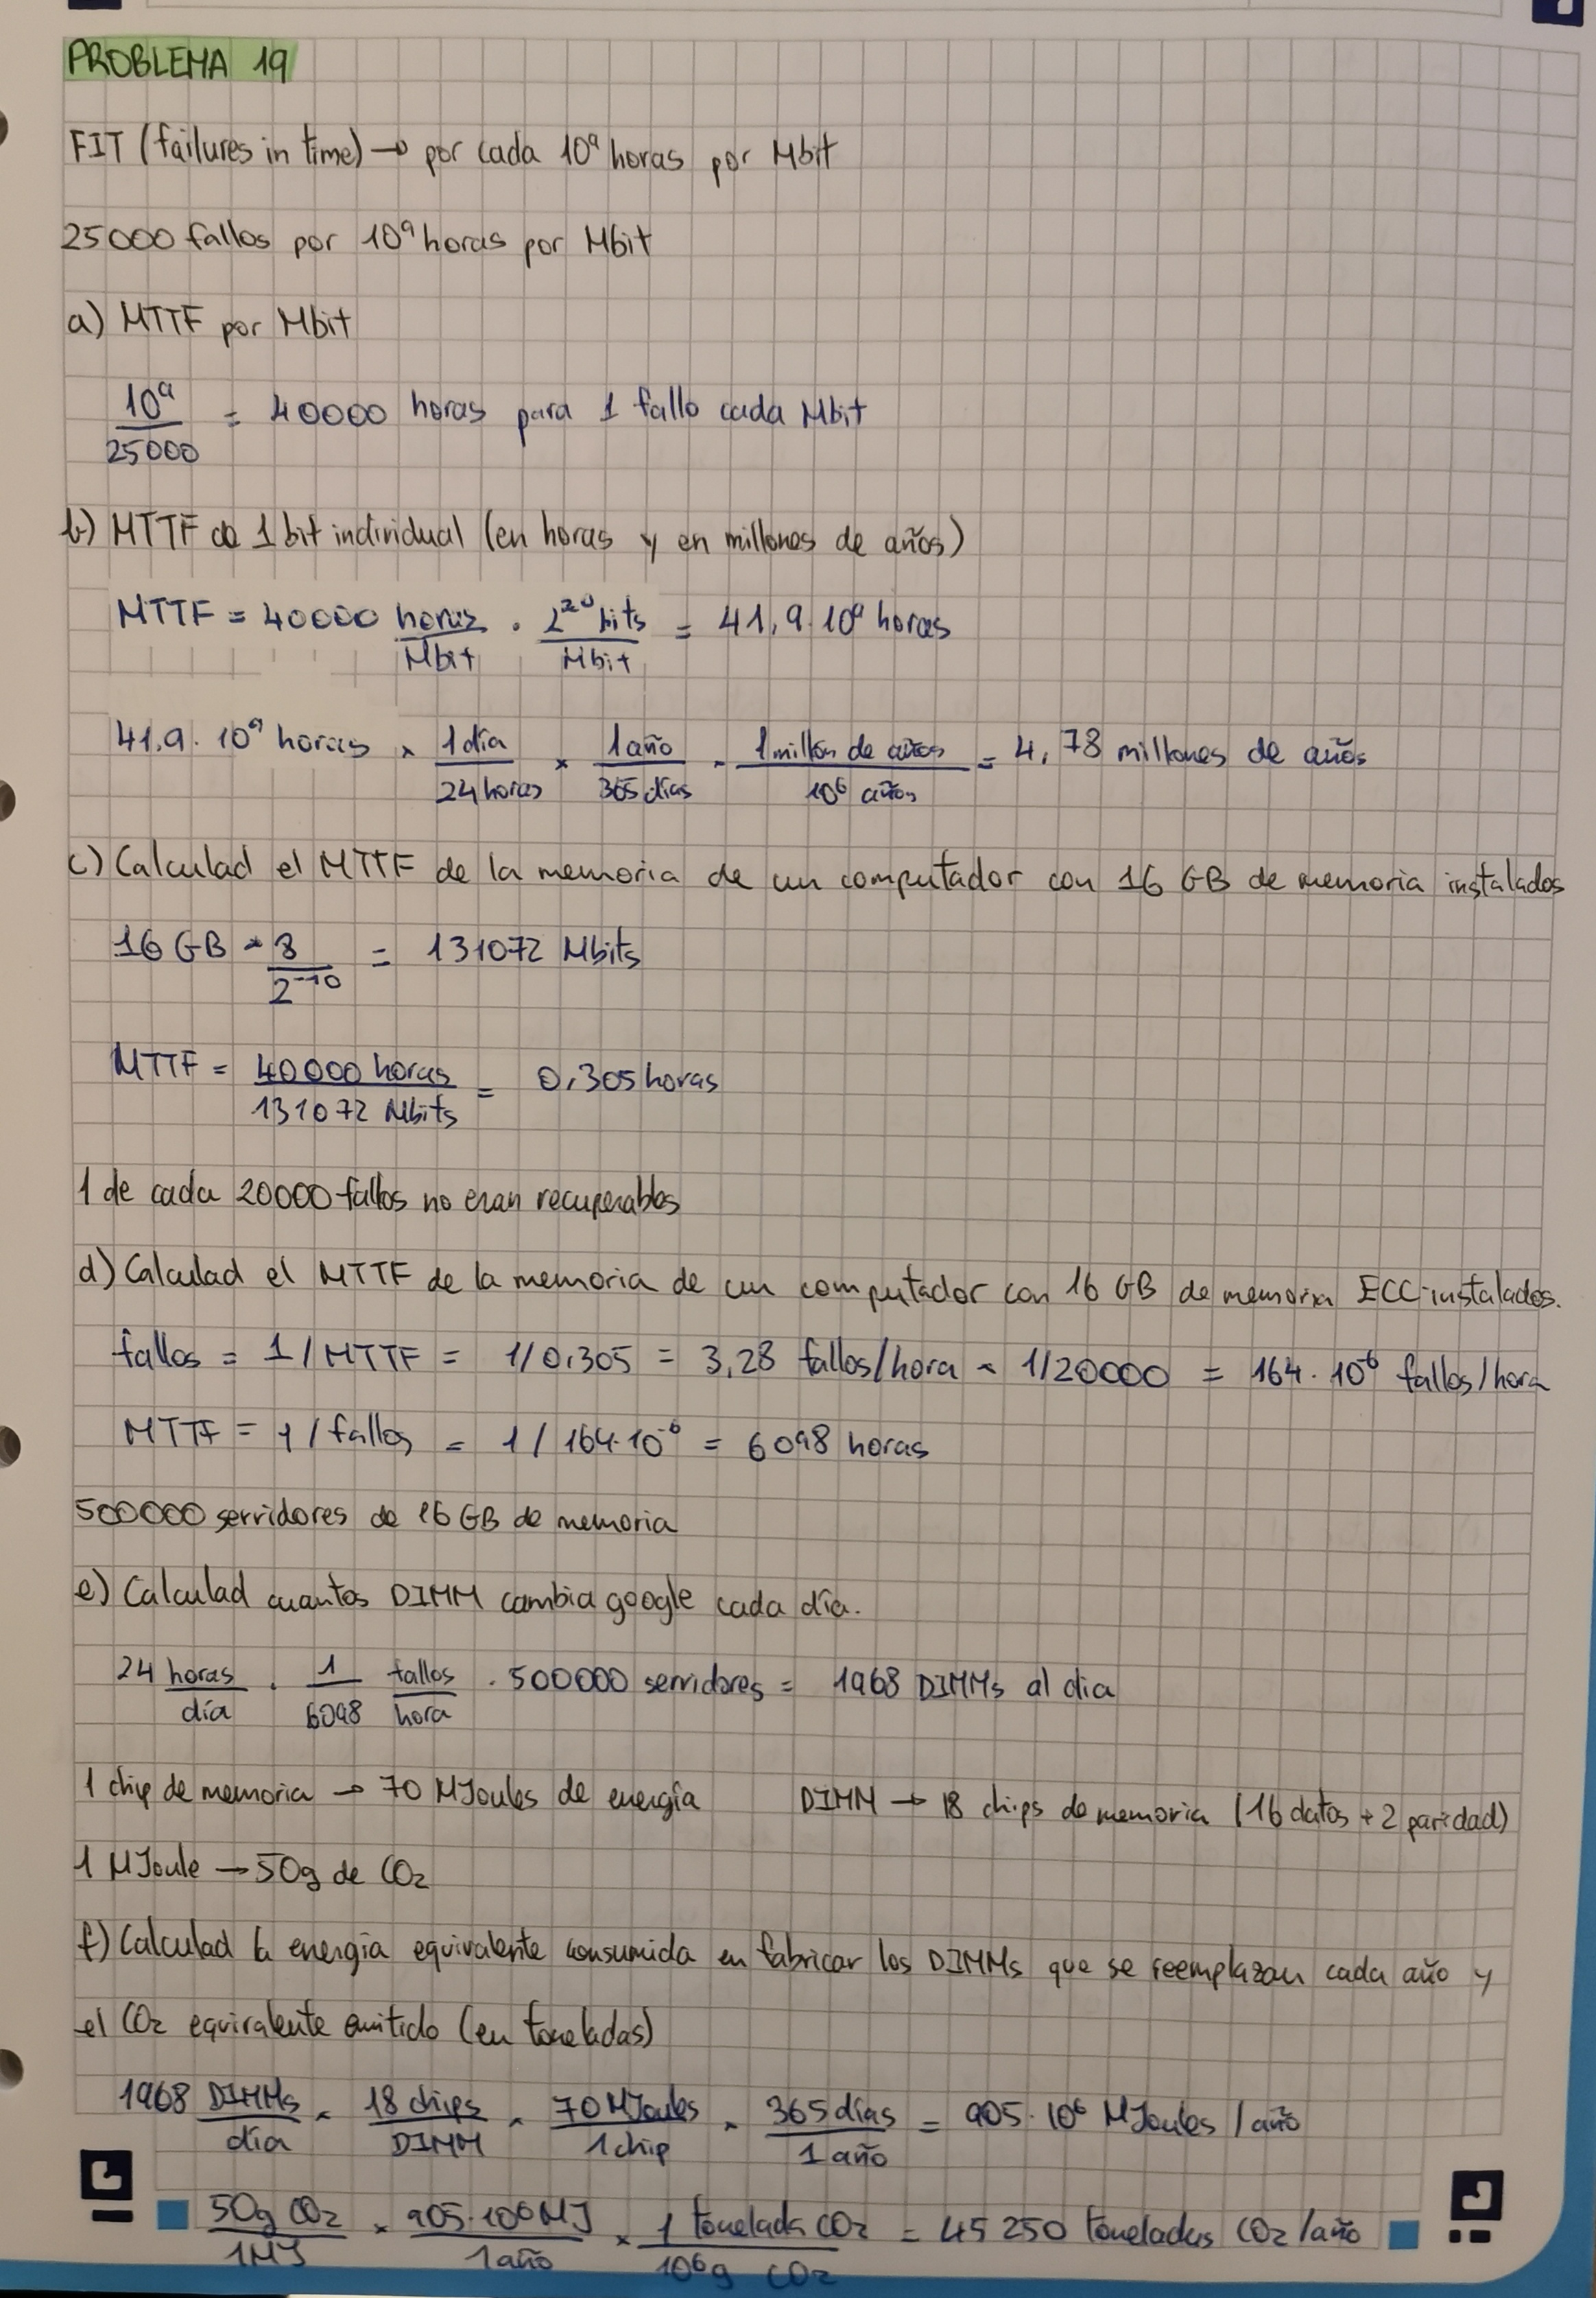 PROBLEMA 19
FIT (failures in time) → por cada 10⁹ horas por Mbit
25000 fallos por 10⁹ horas por Mbit
a) MTTF por Mbit
10⁹ / 25000 = 40000 horas para 1 fallo cada Mbit
b) MTTF de 1 bit individual (en horas y en millones de años)
MTTF = 40000 horas/Mbit · 2²⁰ bits/Mbit = 41,9·10⁹ horas
41,9·10⁹ horas × 1 día/24 horas × 1 año/365 días · 1 millón de años/10⁶ años = 4,78 millones de años
c) Calculad el MTTF de la memoria de un computador con 16 GB de memoria instalados
16 GB × 8/2⁻¹⁰ = 131072 Mbits
MTTF = 40000 horas/131072 Mbits = 0,305 horas
1 de cada 20000 fallos no eran recuperables
d) Calculad el MTTF de la memoria de un computador con 16 GB de memoria ECC instalados.
fallos = 1/MTTF = 1/0,305 = 3,28 fallos/hora × 1/20000 = 164·10⁻⁶ fallos/hora
MTTF = 1/fallos = 1/164·10⁻⁶ = 6098 horas
500000 servidores de 16 GB de memoria
e) Calculad cuantos DIMM cambia google cada día.
24 horas/día · 1/6098 fallos/hora · 500000 servidores = 1968 DIMMs al dia
1 chip de memoria → 70 MJoules de energía DIMM → 18 chips de memoria (16 datos + 2 paridad)
1 MJoule → 50g de CO₂
f) Calculad la energía equivalente consumida en fabricar los DIMMs que se reemplazan cada año y
el CO₂ equivalente emitido (en toneladas)
1968 DIMMs/día × 18 chips/DIMM × 70 MJoules/1 chip × 365 días/1 año = 905·10⁶ MJoules/año
50g CO₂/1MJ × 905·10⁶ MJ/1 año × 1 tonelada CO₂/10⁶g CO₂ = 45 250 toneladas CO₂/año